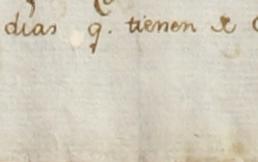 dias q. tienen